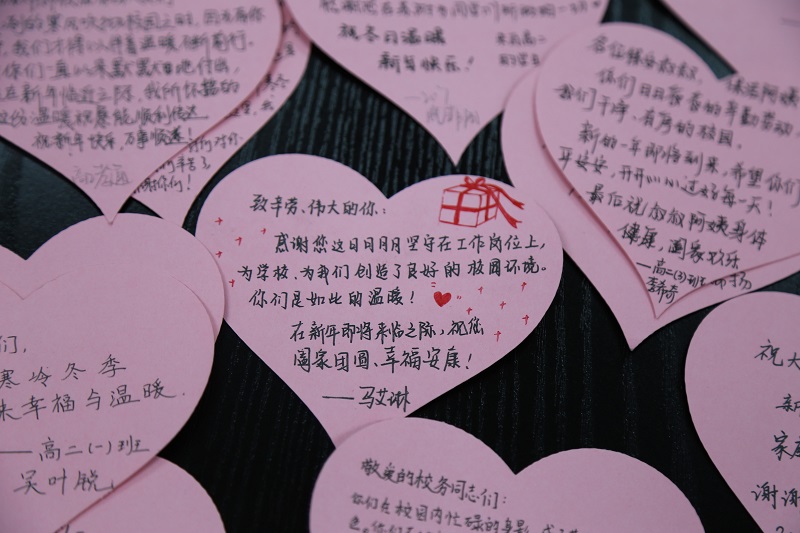 的寒风吹打校园之时,因为有你
,我们才得以伴着温暖不断前行。
你们一直以来默默地付出,
在新年临近之际,我所怀揣的
祝福温暖祝愿能顺利传达
祝新年快乐,万事顺遂!
谢谢你们!
祝冬日温暖
新年快乐!
各位楼安叔叔、保洁阿姨
你们日日夜夜的辛勤劳动,
我们干净、有序的校园。
新的一年即将到来,希望你们
平安安,开开心心过好每一天!
最后祝叔叔阿姨身体
健康,阖家欢乐
—高二(3)班
致辛劳、伟大的你:
感谢您这日日月月坚守在工作岗位上,
为学校、为我们创造了良好的校园环境。
你们是如此的温暖!
在新年即将来临之际,祝您
阖家团圆、幸福安康!
——马艾琳
们,
寒冷冬季
来幸福与温暖.
——高二(一)班
吴叶锐
敬爱的校务同志们:
你们在校园内忙碌的身影,
祝大
新
家庭
谢谢